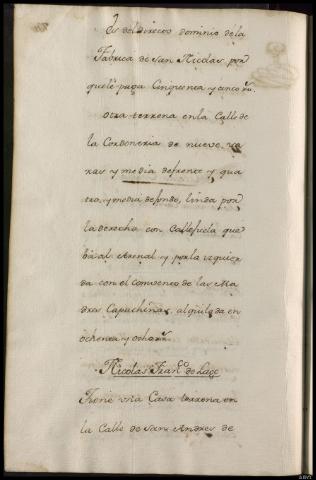 Es del directo dominio de la
Fabrica de San Nicolas por
que le paga Cinquenta y cinco rs.
otra terrena en la Calle de
la Cordoneria de nueve va
ras y media de frente y qua
tro, y media de fondo, linda por
la derecha con Callejuela que
ba al Arenal y por la izquier
da con el convento de las Ma
dres Capuchinas, alquilada en
ochenta y ocho rs.
Nicolas Franco. de Lage
Tiene una Casa terrena en
la Calle de San Andres de